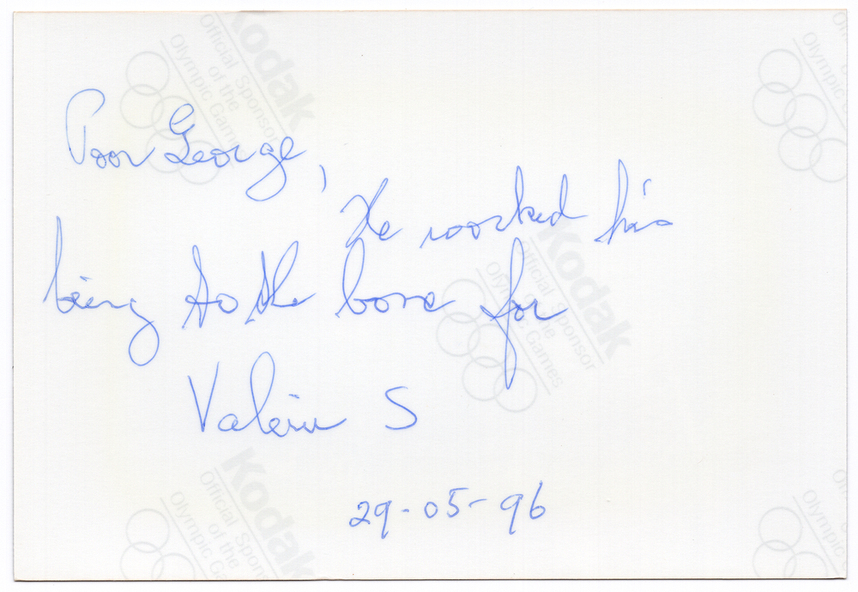 Poor George,
He worked his
being to the bone for
Valerie S
29-05-96
Kodak
Official Sponsor
of the
Olympic Games
Kodak
Official Sponsor
of the
Olympic Games
Kodak
Official Sponsor
of the
Olympic Games
Official
Olympic
Official
Olympic